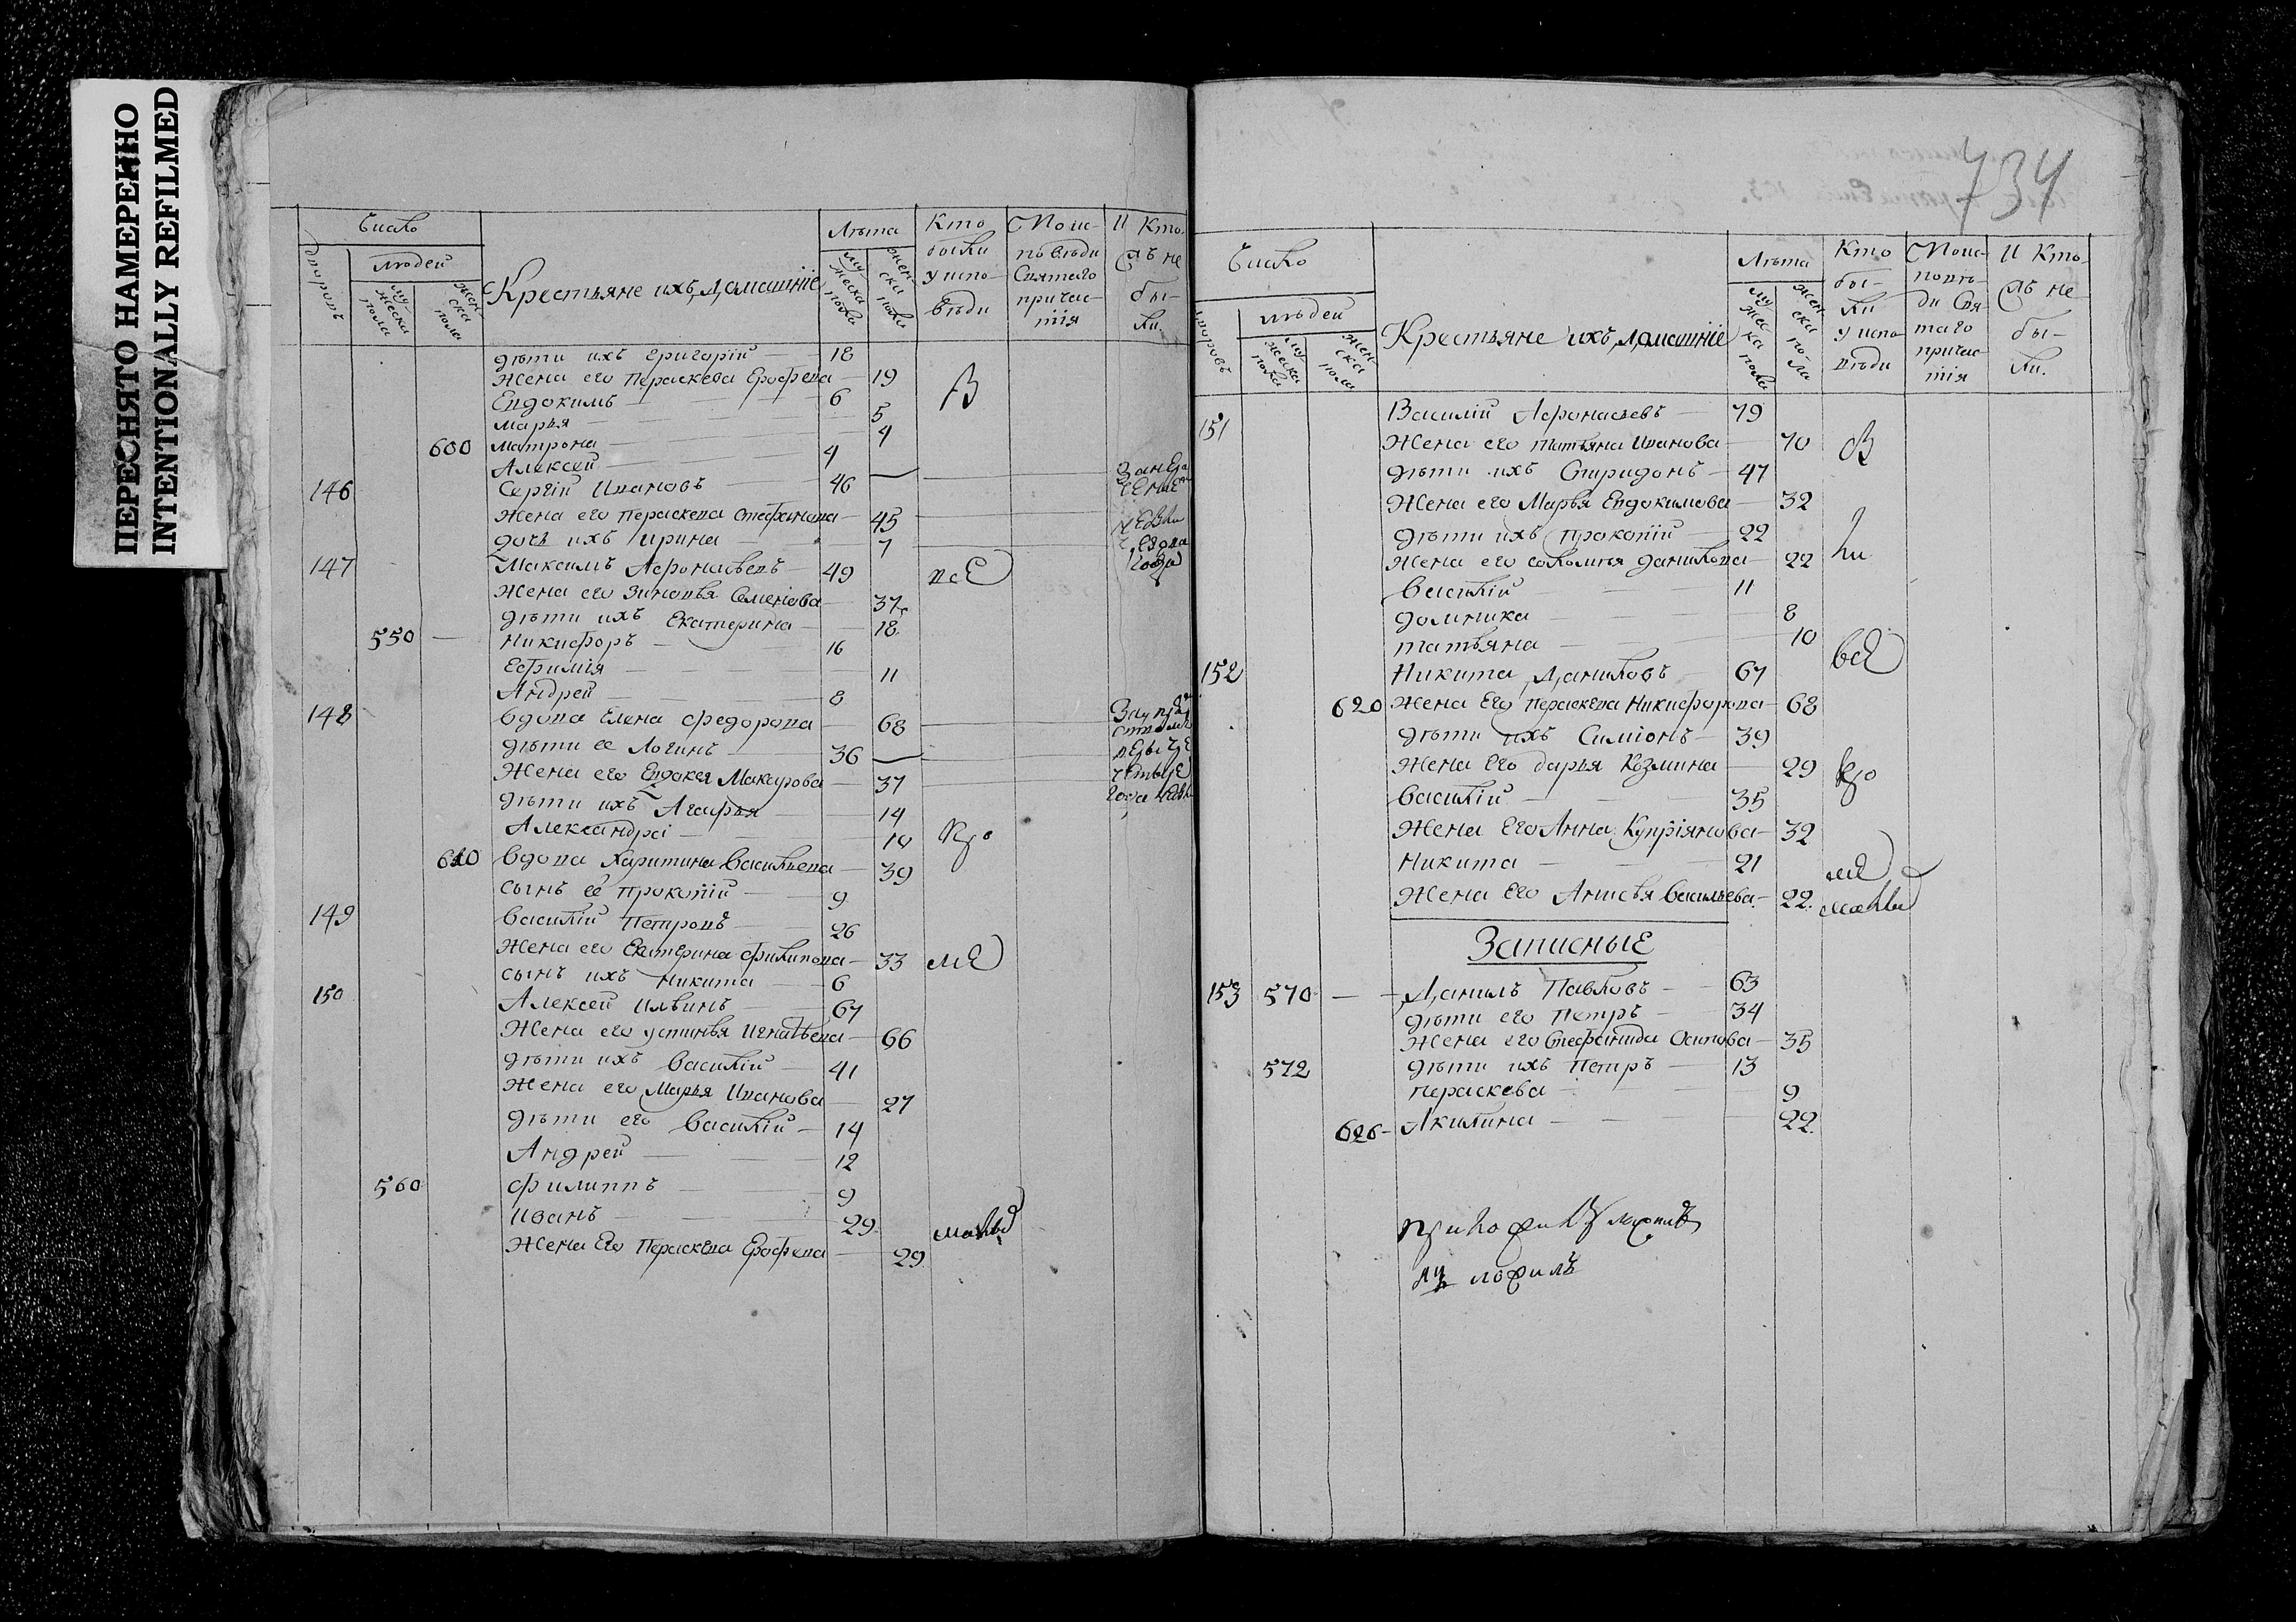 ПЕРЕСНЯТО НАМЕРЕННО
INTENTIONALLY REFILMED
Число
Людей
дворовъ
мужеска пола
женска пола
Крестьяне ихъ домашніе
Лѣта
мужеска пола
женска пола
Кто были у исповѣди
И кто ... не были
дѣти ихъ Григорій — 18
Жена его Параскева Ерофеева — 19
Евдокимъ — 6
Марья — 5
600 Матрона — 4
Алексей — 4
146 Сергій Ивановъ — 46
Жена его Пераскева Стефанова — 45
дочь ихъ Ирина — 7
147 Максимъ Афонасьевъ — 49
Жена его Зиновья Семенова — 37
дѣти ихъ Екатерина — 18
550 — Никифоръ — 16
Ефимія — 11
Андрей — 8
148 вдова Елена Федорова — 68
дѣти ее Логинъ — 36
Жена его Евдокея Макарова — 37
дѣти ихъ Агафья — 14
Александра — 10
610 вдова Харитина Васильева — 39
сынъ ее Прокопій — 9
149 Василій Петровъ — 26
Жена его Екатерина Филипова — 33
сынъ ихъ Никита — 6
150 Алексей Ильинъ — 67
Жена его Устинья Игнатьева — 66
дѣти ихъ Василій — 41
Жена его Марья Иванова — 27
дѣти его Василій — 14
Андрей — 12
560 Филиппъ — 9
Иванъ — 29
Жена Его Пераскева Ерофеева — 29
734
Число
Людей
дворовъ
мужеска пола
женска пола
Крестьяне ихъ домашніе
Лѣта
мужеска пола
женска пола
Кто были у исповѣди
И кто ... не были.
151 Василій Афонасьевъ — 79
Жена его Татьяна Иванова — 70
дѣти ихъ Спиридонъ — 47
Жена его Марья Евдокимова — 32
дѣти ихъ Прокопій — 22
Жена его Соломия Данилова — 22
Василій — 11
Домника — 8
Татьяна — 10
152 Никита Даниловъ — 67
620 Жена Его Пераскева Никифорова — 68
дѣти ихъ Симіонъ — 39
Жена Его Дарья Козмина — 29
Василій — 35
Жена Его Анна Купріянова — 32
Никита — 21
Жена Его Анисья Васильева — 22
Записные
153 570 — Данилъ Павловъ — 63
дѣти его Петръ — 34
Жена его Стефанида Осипова — 35
572 дѣти ихъ Петръ — 13
Пераскева — 9
626 — Акилина — 22